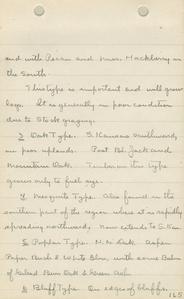 and with Pecan and  Hackberry in
the South.
This type is important and will grow
logs. It is generally in poor condition
due to stock grazing.
3 Oak Type. S. Kansas southward,
on poor uplands. Post Bl. Jack and
Mountain Oak. Timber in this type
grows only to fuel size.
4 Mesquite Type. Also found in the
southern part of the region where it is rapidly
spreading northward, now extends to S. Kan.
5 Poplar Type. N. N. Dak. Aspen
Paper Birch & White Elm, with some Balm
of Gilead Burr Oak & Green Ash.
6 Bluff Type. On edges of bluffs.
165